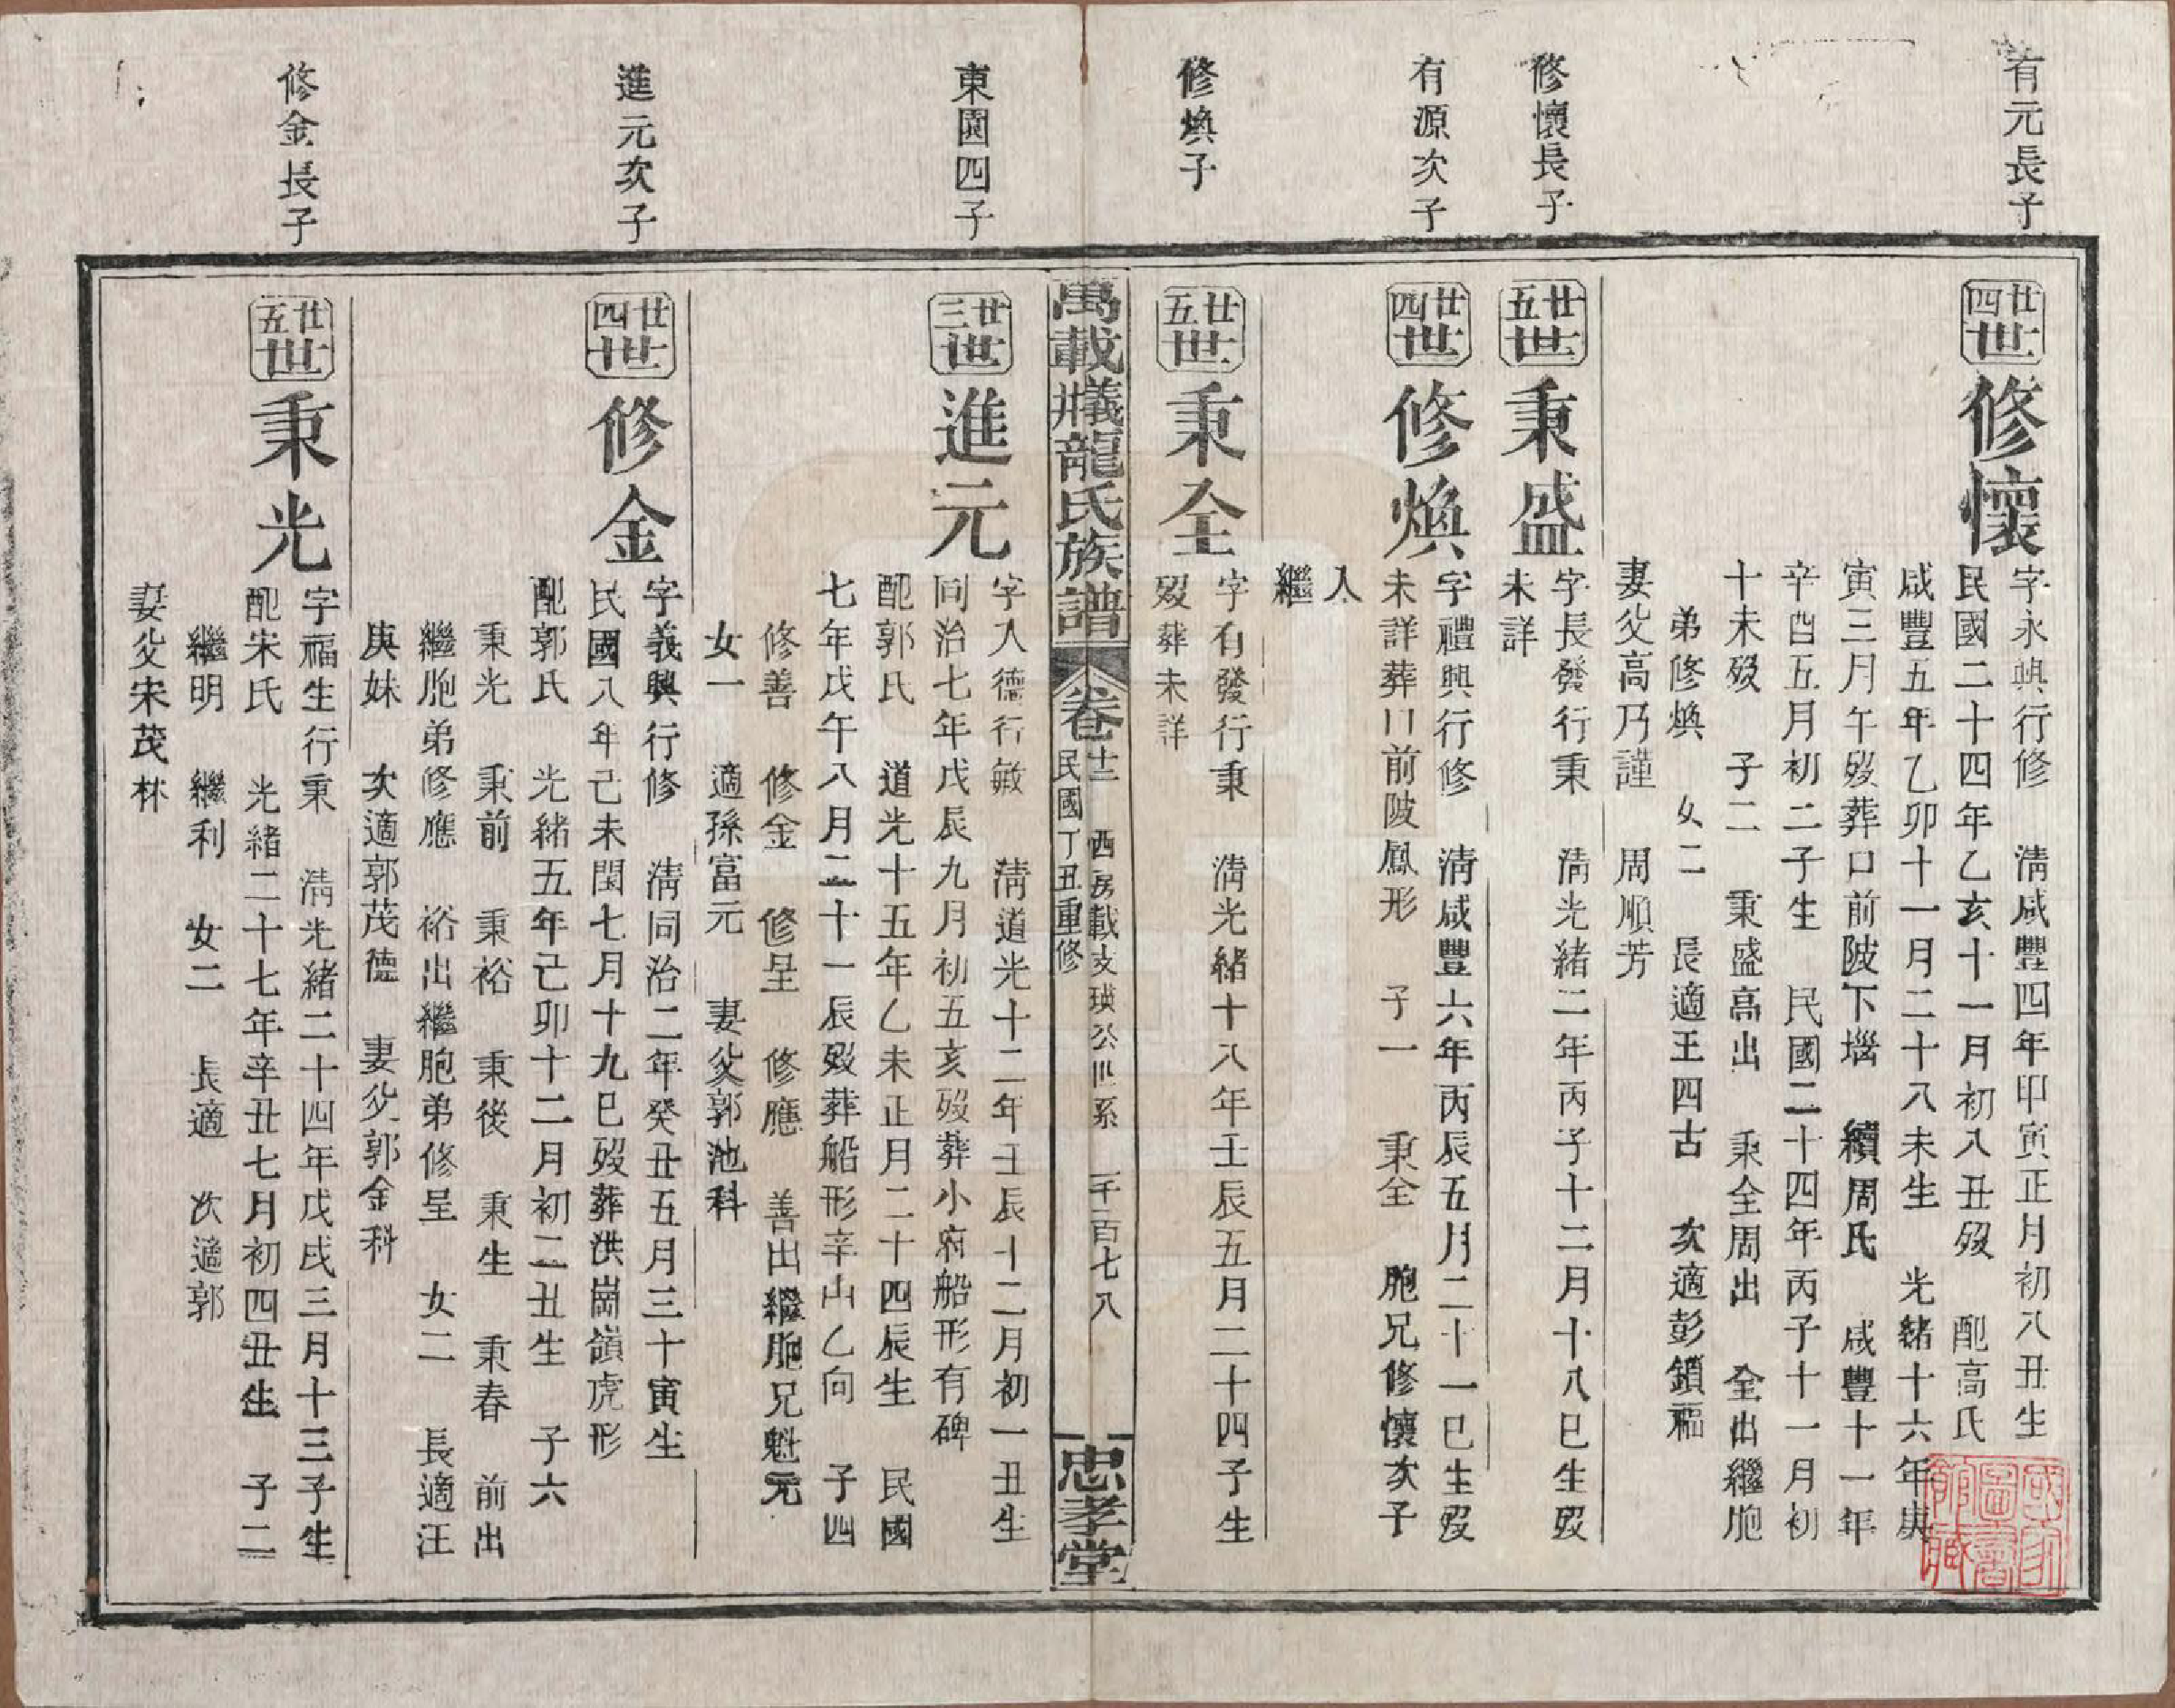 有元長子
廿四世
修懷
字永興行修　清咸豐四年甲寅正月初八丑生
民國二十四年乙亥十一月初八丑歿　配高氏
咸豐五年乙卯十一月二十八未生　光緒十六年庚
寅三月午歿葬口前陂下堖　續周氏　咸豐十一年
辛酉五月初二子生　民國二十四年丙子十一月初
十未歿　子二　秉盛高出　秉全周出　全出繼胞
弟修煥　女二　長適王四古　次適彭鎖福
妻父高乃謹　周順芳
修懷長子
廿五世
秉盛
字長發行秉　清光緒二年丙子十二月十八巳生歿
未詳
有源次子
廿四世
修煥
字禮興行修　清咸豐六年丙辰五月二十一巳生歿
未詳葬口前陂鳳形　子一　秉全　胞兄修懷次子
入
繼
修煥子
廿五世
秉全
字有發行秉　清光緒十八年壬辰五月二十四子生
歿葬未詳
萬載牂義龍氏族譜　卷十二　西房載支瑛公世系　一千一百七八
民國丁丑重修
忠孝堂
東園四子
廿三世
進元
字入德行敏　清道光十二年壬辰十二月初一丑生
同治七年戊辰九月初五亥歿葬小府船形有碑
配郭氏　道光十五年乙未正月二十四辰生　民國
七年戊午八月二十一辰歿葬船形辛山乙向　子四
修善　修金　修呈　修應　善出繼胞兄魁元
女一　適孫富元　妻父郭池科
進元次子
廿四世
修金
字義興行修　清同治二年癸丑五月三十寅生
民國八年己未閏七月十九巳歿葬洪崗嶺虎形
配郭氏　光緒五年己卯十二月初二丑生　子六
秉光　秉前　秉裕　秉後　秉生　秉春　前出
繼胞弟修應　裕出繼胞弟修呈　女二　長適汪
庚妹　次適郭茂德　妻父郭金科
修金長子
廿五世
秉光
字福生行秉　清光緒二十四年戊戌三月十三子生
配宋氏　光緒二十七年辛丑七月初四丑生　子二
繼明　繼利　女二　長適　次適郭
妻父宋茂林
國家圖書館藏